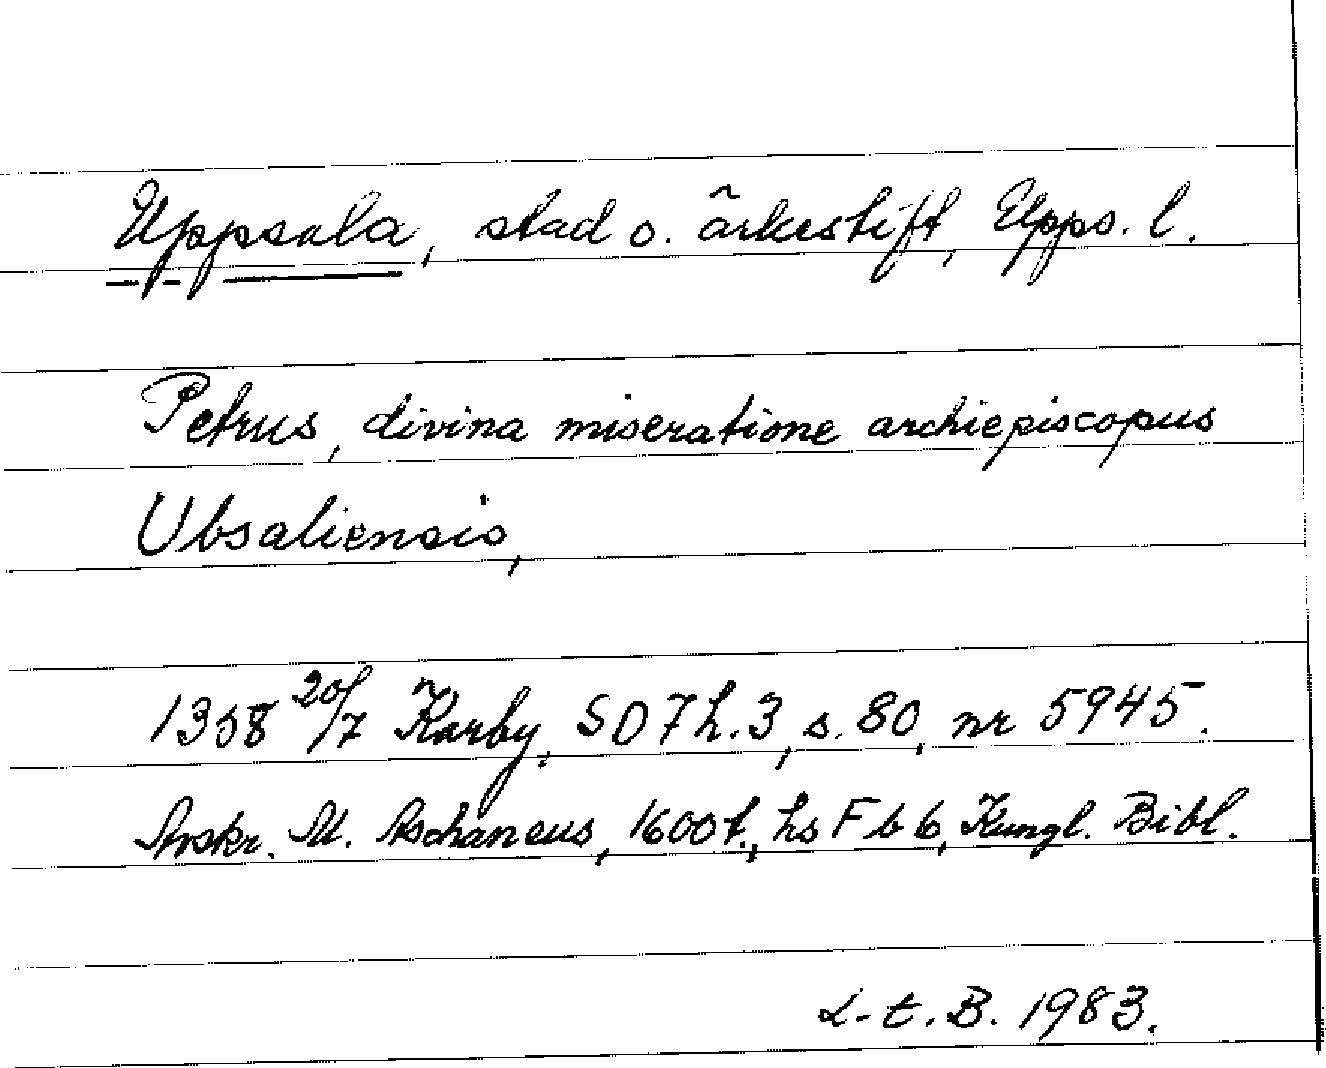 Uppsala, stad o. ärkestift, Upps. l.
Petrus, divina miseratione archiepiscopus
Ubsaliensis,
1358 20/7 Karby, SD 7 h. 3, s. 80, nr 5945.
Avskr. M. Aschaneus, 1600 t., hs F b 6, Kungl. Bibl.
L-t. B. 1983.